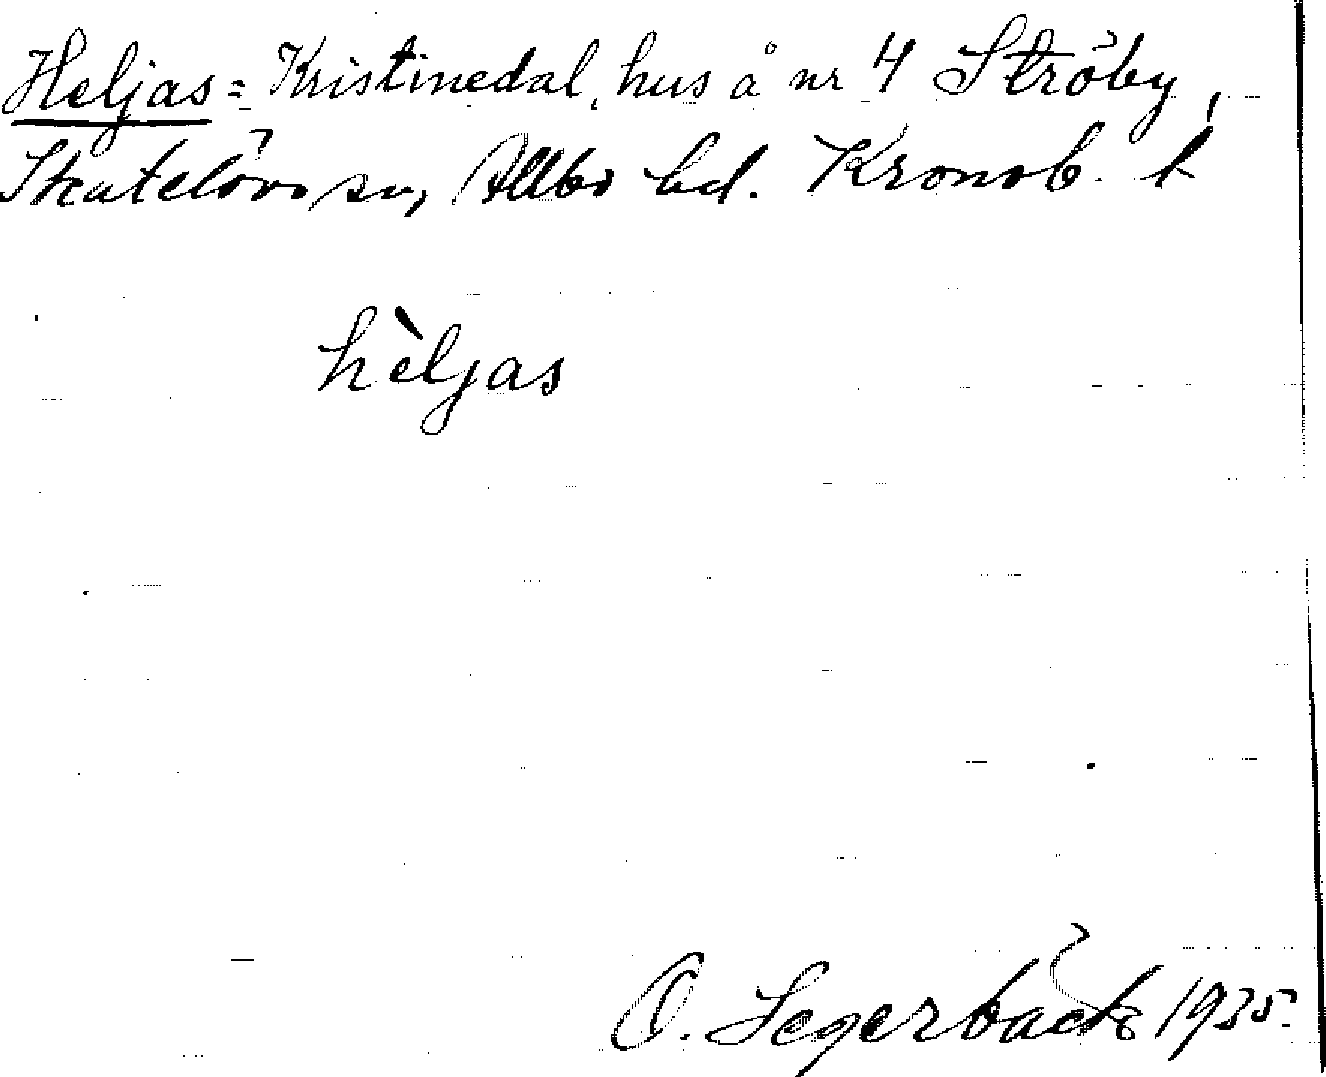 Heljas = Kristinedal, hus å nr 4 Ströby,
Skatelövs sn, Allbo hd. Kronob. l
hèljas
O. Segerbäck 1935.